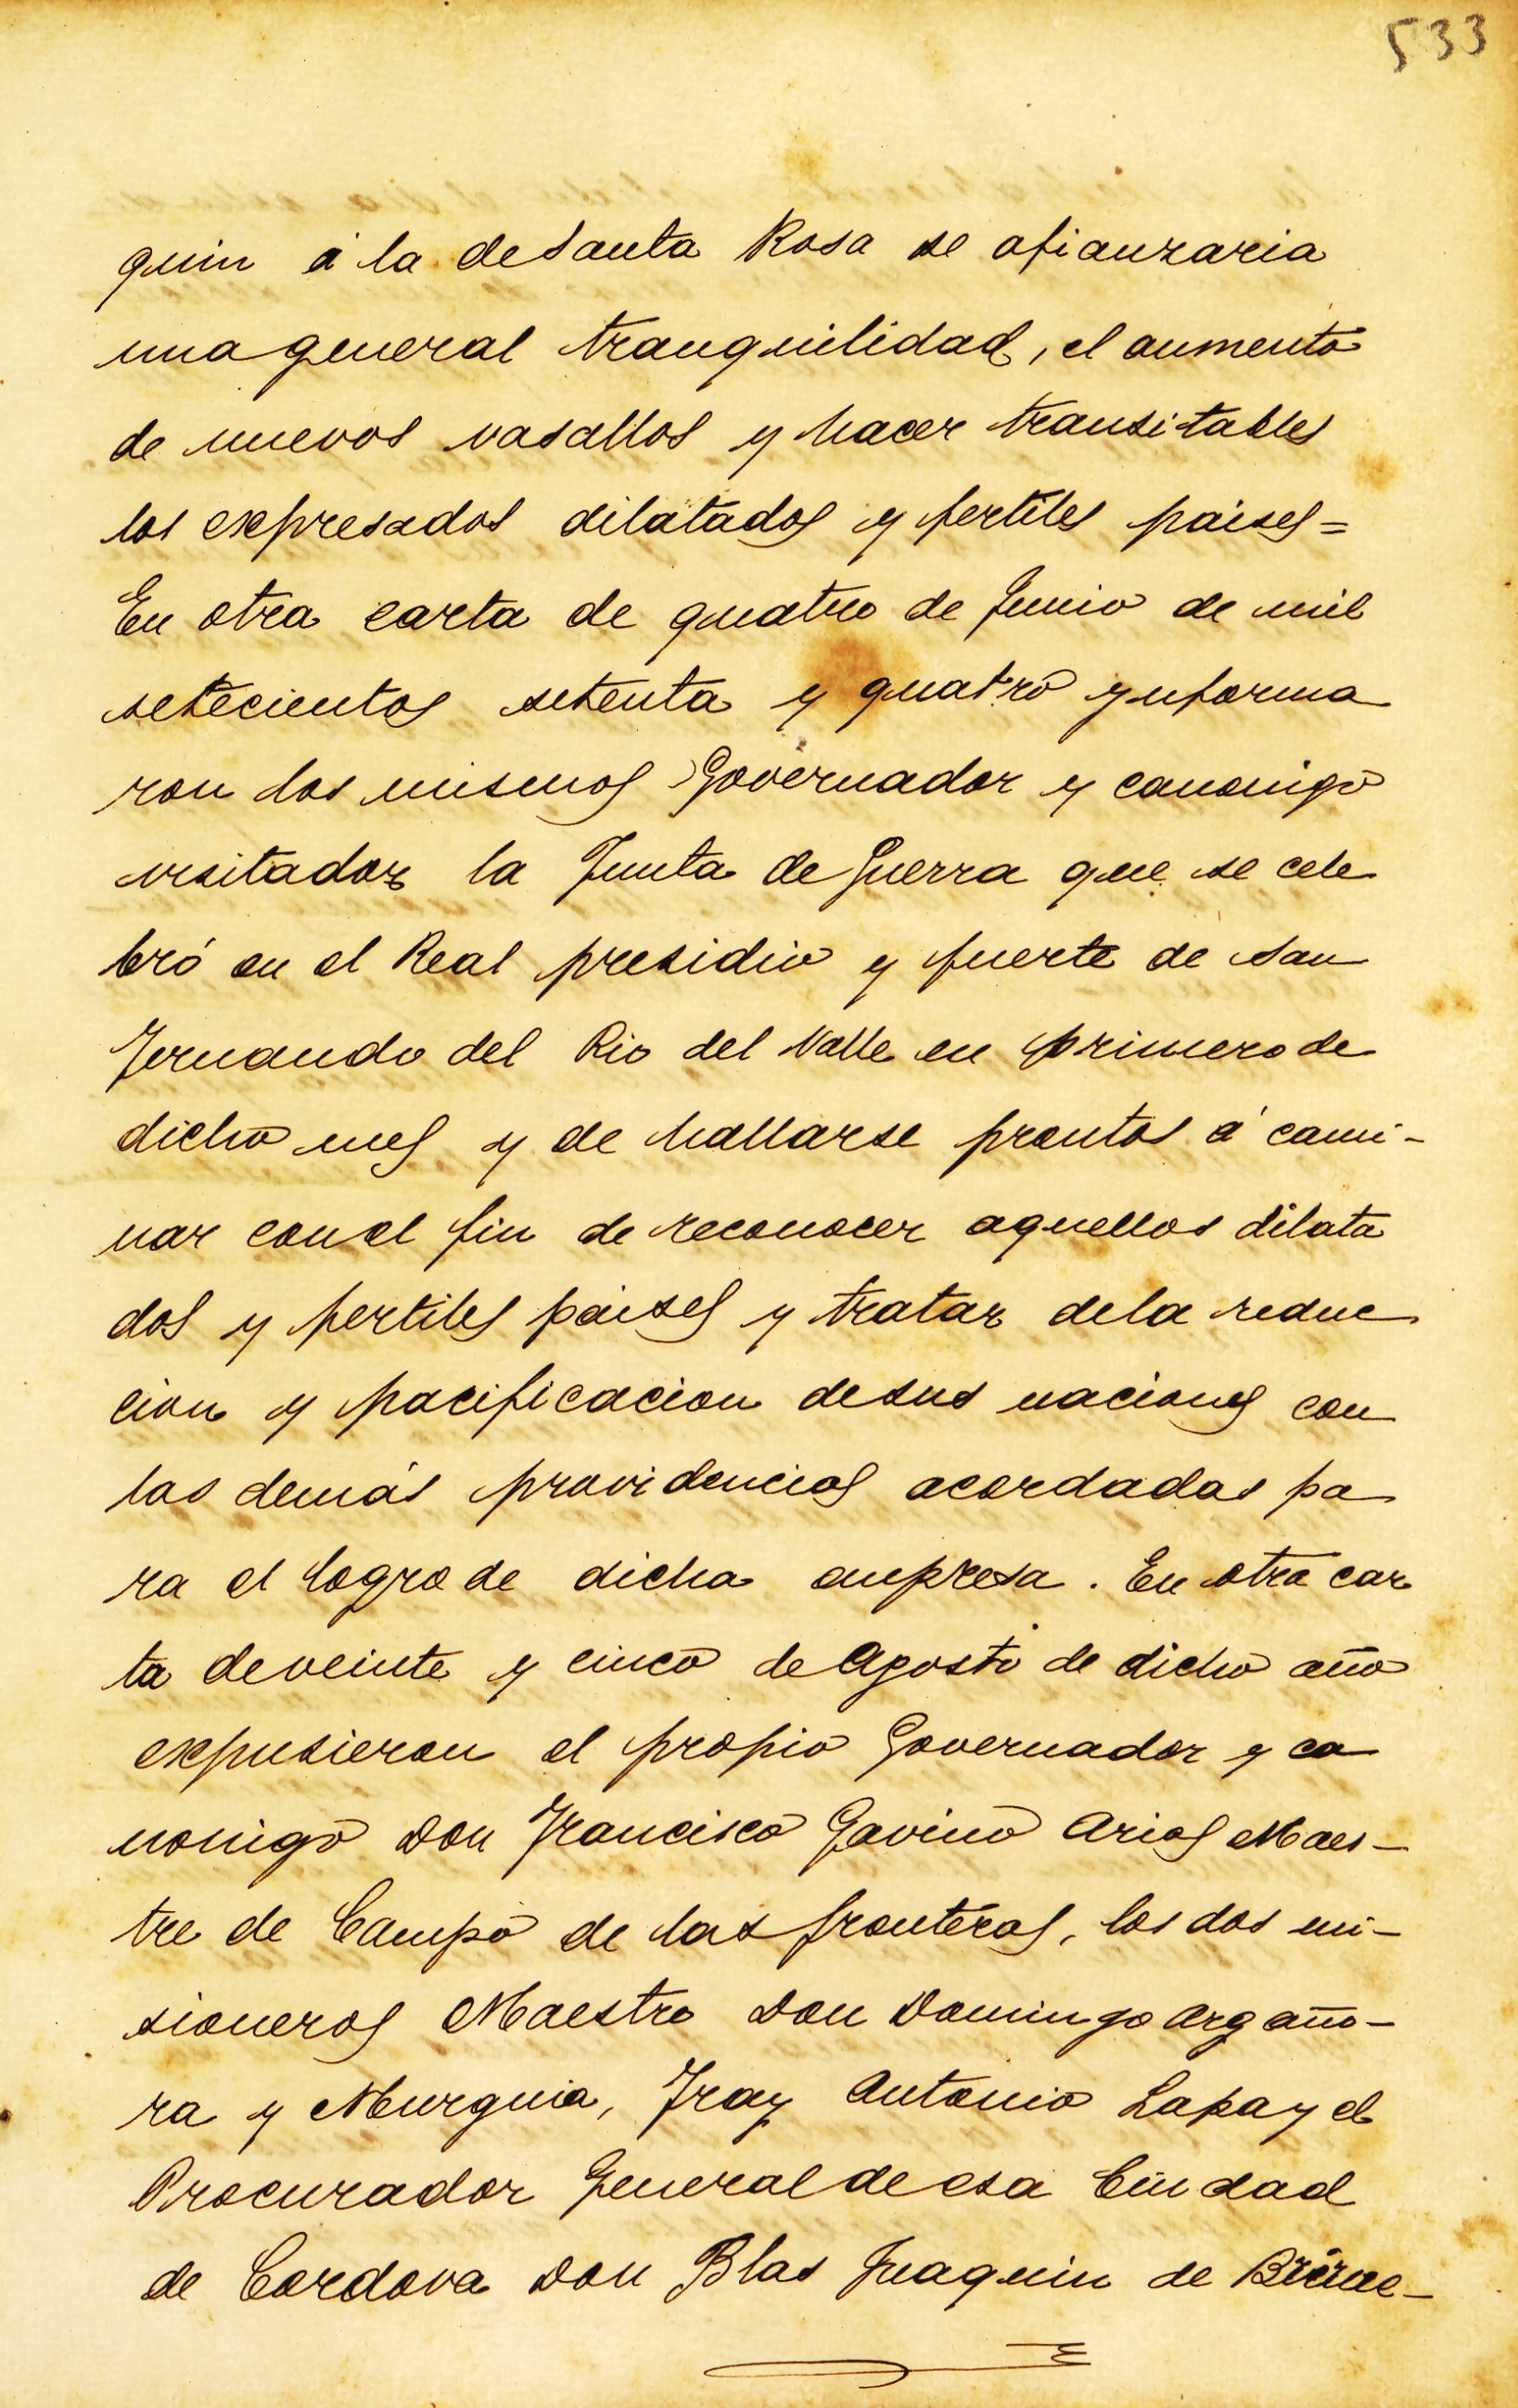 533
quin á la de Santa Rosa se afianzaria
una general tranquilidad, el aumento
de nuevos vasallos y hacer transitables
los expresados dilatados y fertiles paises=
En otra carta de quatro de Junio de mil
setecientos setenta y quatro ynforma
ron los mismos Governador y canonigo
visitador la Junta de Guerra que se cele
bró en el Real presidio y fuerte de San
Fernando del Rio del Valle en primero de
dicho mes y de hallarse prontos á cami-
nar con el fin de reconocer aquellos dilata
dos y fertiles paises y tratar de la reduc
cion y pacificacion de sus naciones con
las demás providencias acordadas pa
ra el logro de dicha empresa. En otra car
ta de veinte y cinco de Agosto de dicho año
expusieron el propio Governador y ca
nonigo Don Francisco Gavino Arias Maes-
tre de Campo de las fronteras, los dos mi-
sioneros Maestro Don Domingo Argaño-
ra y Murguia, Fray Antonio Lapa y el
Procurador General de esa Ciudad
de Cordova Don Blas Juaquin de